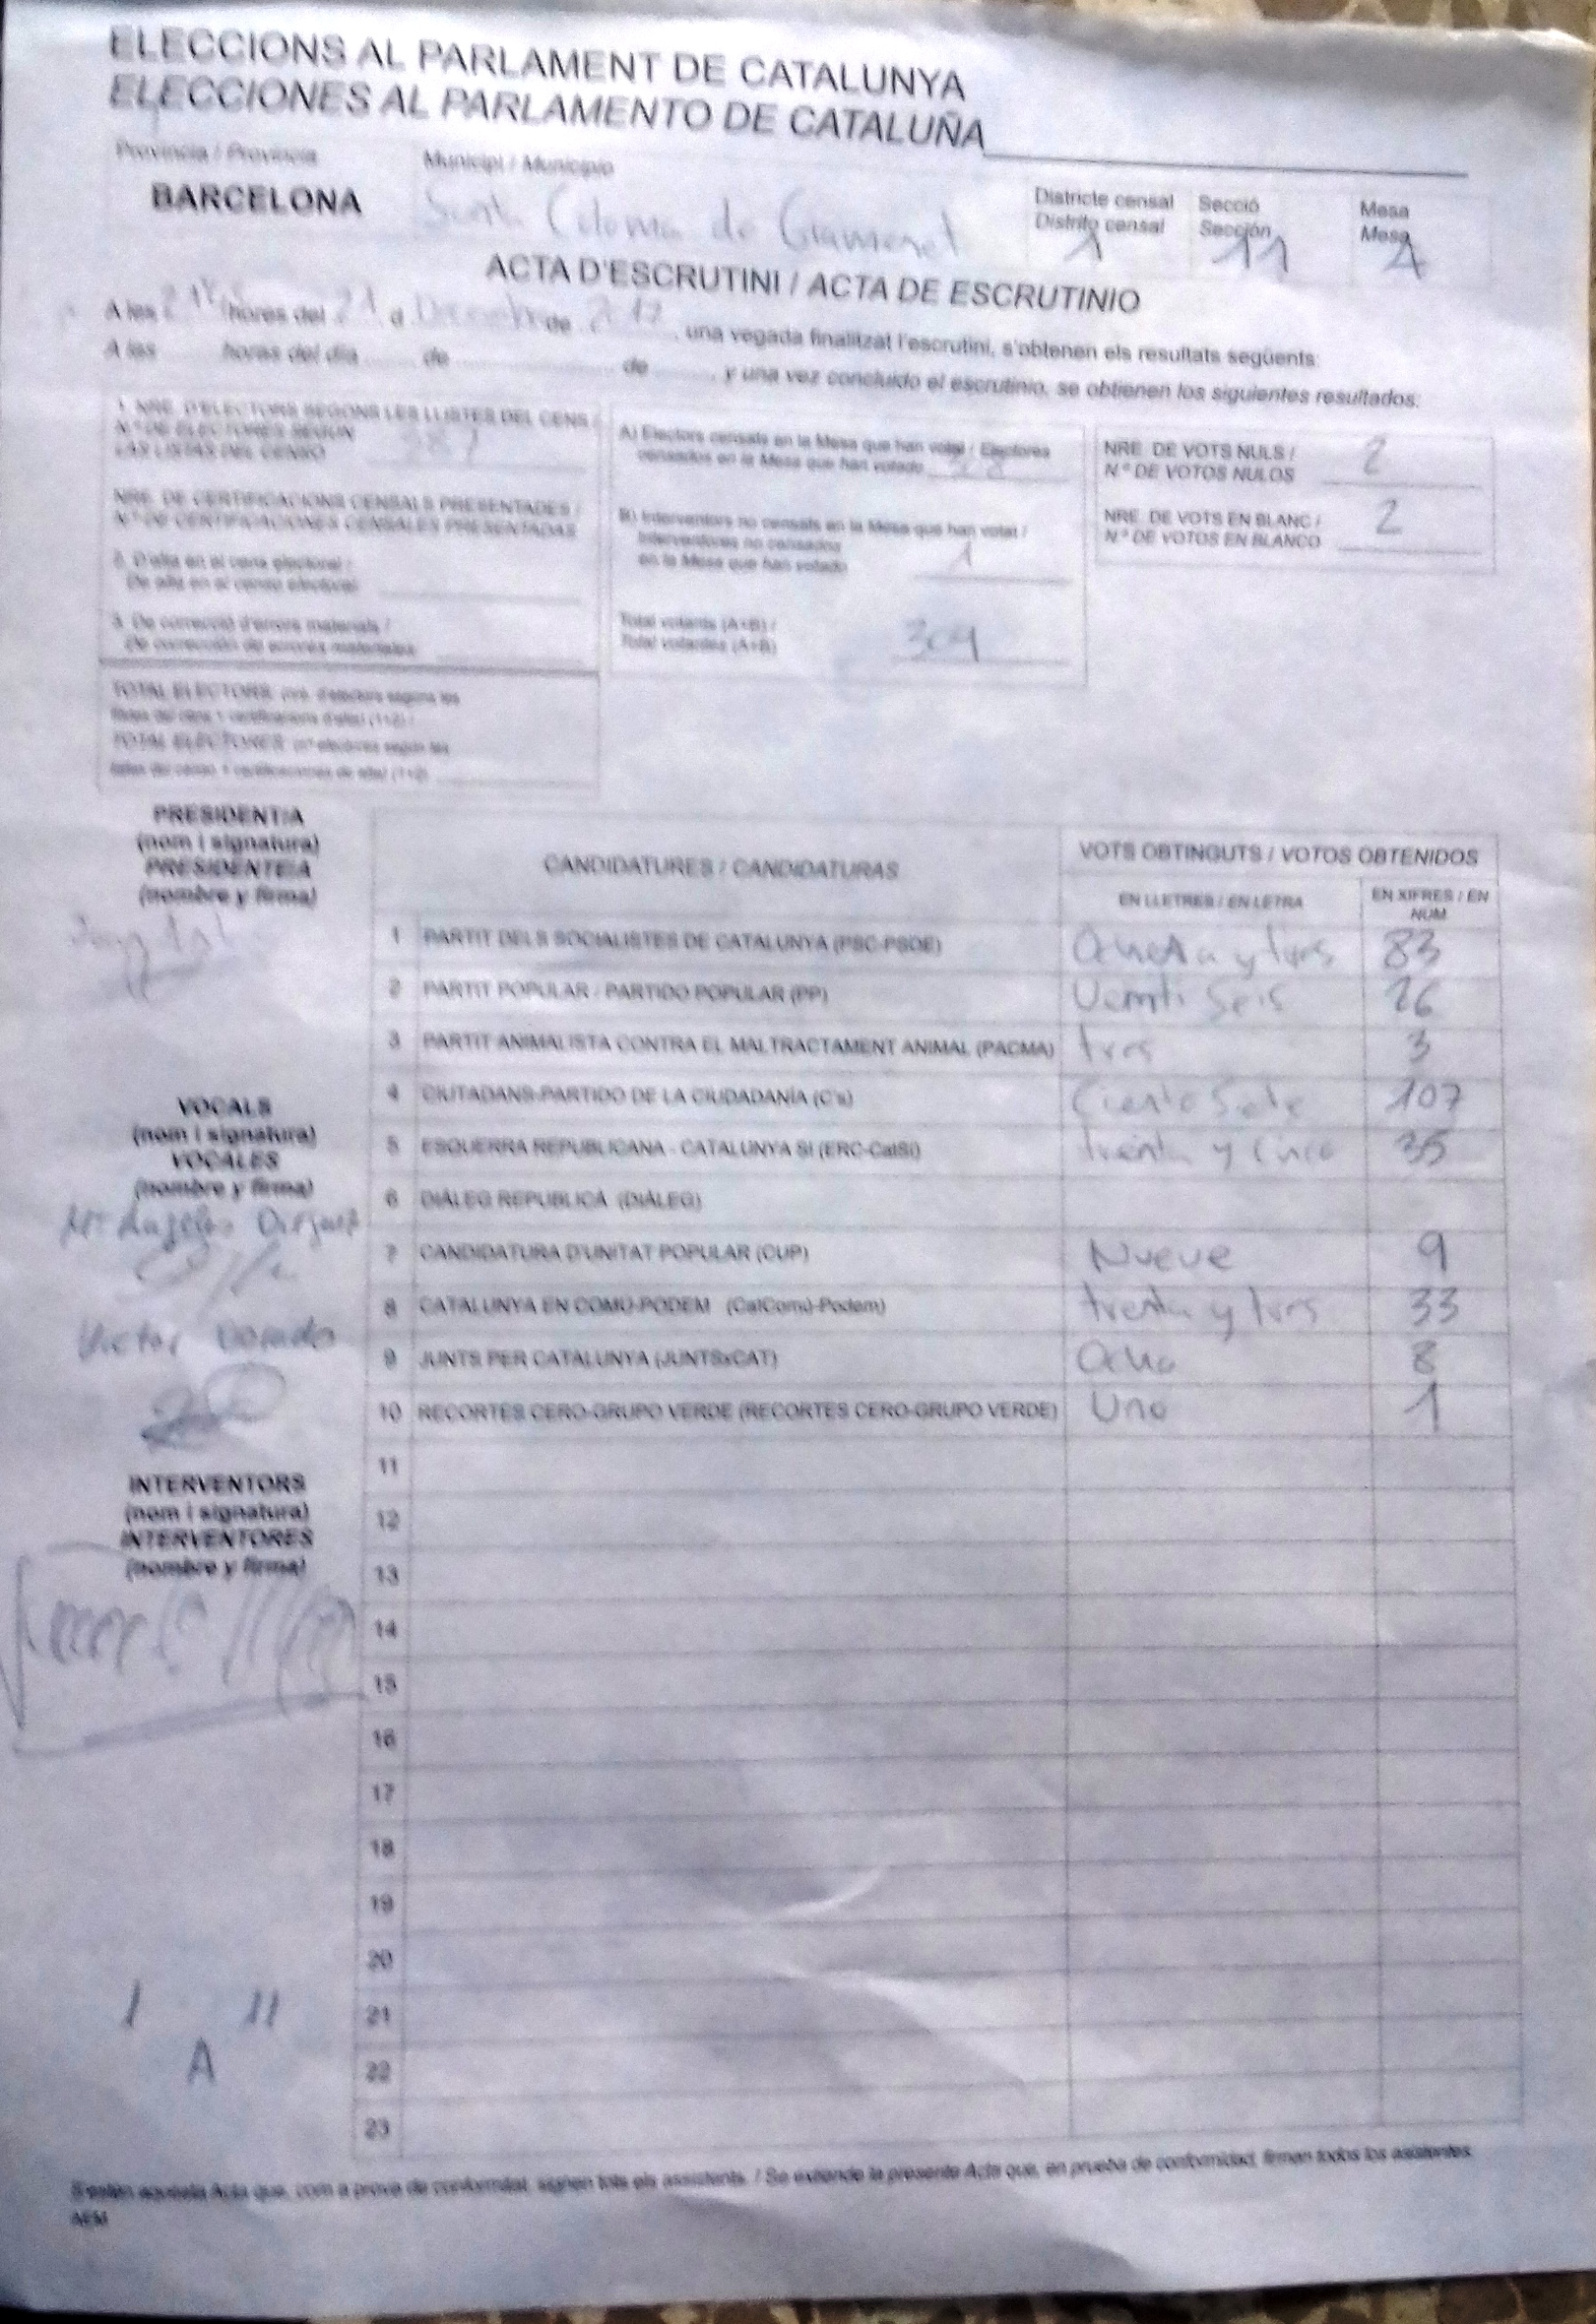 ELECCIONS AL PARLAMENT DE CATALUNYA
ELECCIONES AL PARLAMENTO DE CATALUÑA
Provincia / Provincia
Municipi / Municipio
BARCELONA
Santa Coloma de Gramenet
Districte censal
Distrito censal
1
Secció
Sección
11
Mesa
Mesa
A
ACTA D'ESCRUTINI / ACTA DE ESCRUTINIO
A les hores del 21 d Diciembre de 2017, una vegada finalitzat l'escrutini, s'obtenen els resultats següents:
A las horas del día ...... de ........................ de ........, y una vez concluido el escrutinio, se obtienen los siguientes resultados:
1. NRE. D'ELECTORS SEGONS LES LLISTES DEL CENS /
N.º DE ELECTORES SEGÚN
LAS LISTAS DEL CENSO
NRE. DE CERTIFICACIONS CENSALS PRESENTADES /
N.º DE CERTIFICACIONES CENSALES PRESENTADAS
2. D'alta en el cens electoral /
De alta en el censo electoral
3. De correcció d'errors materials /
De corrección de errores materiales
TOTAL ELECTORS: (nre. d'electors segons les
llistes del cens + certificacions d'alta) (1+2) /
TOTAL ELECTORES: (nº electores según las
listas del censo + certificaciones de alta) (1+2)
A) Electors censats en la Mesa que han votat / Electores
censados en la Mesa que han votado
B) Interventors no censats en la Mesa que han votat /
Interventores no censados
en la Mesa que han votado 1
Total votants (A+B) /
Total votantes (A+B) 309
NRE. DE VOTS NULS /
N.º DE VOTOS NULOS 2
NRE. DE VOTS EN BLANC /
N.º DE VOTOS EN BLANCO 2
PRESIDENT/A
(nom i signatura)
PRESIDENTE/A
(nombre y firma)
VOCALS
(nom i signatura)
VOCALES
(nombre y firma)
Mª Angeles
Victor
INTERVENTORS
(nom i signatura)
INTERVENTORES
(nombre y firma)
1 11
A
CANDIDATURES / CANDIDATURAS
VOTS OBTINGUTS / VOTOS OBTENIDOS
EN LLETRES / EN LETRA
EN XIFRES / EN
NÚM
1 PARTIT DELS SOCIALISTES DE CATALUNYA (PSC-PSOE) Ochenta y tres 83
2 PARTIT POPULAR / PARTIDO POPULAR (PP) Veinti Seis 26
3 PARTIT ANIMALISTA CONTRA EL MALTRACTAMENT ANIMAL (PACMA) tres 3
4 CIUTADANS-PARTIDO DE LA CIUDADANÍA (C's) Ciento Siete 107
5 ESQUERRA REPUBLICANA - CATALUNYA SÍ (ERC-CatSí) treinta y cinco 35
6 DIÀLEG REPUBLICÀ (DIÀLEG)
7 CANDIDATURA D'UNITAT POPULAR (CUP) Nueve 9
8 CATALUNYA EN COMÚ-PODEM (CatComú-Podem) treinta y tres 33
9 JUNTS PER CATALUNYA (JUNTSxCAT) Ocho 8
10 RECORTES CERO-GRUPO VERDE (RECORTES CERO-GRUPO VERDE) Uno 1
11
12
13
14
15
16
17
18
19
20
21
22
23
S'estén aquesta Acta que, com a prova de conformitat, signen tots els assistents. / Se extiende la presente Acta que, en prueba de conformidad, firman todos los asistentes.